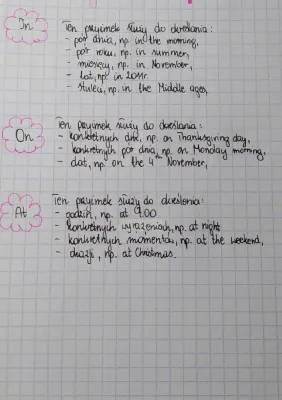 In
Ten przyimek służy do określania:
- pór dnia, np. in the morning,
- pór roku, np. in summer,
- miesięcy, np. in November,
- lat, np. in 2011r.
- stuleci, np. in the Middle ages,
On
Ten przyimek służy do określania:
- konkretnych dni, np. on Thanksgiving day,
- konkretnych pór dnia, np. on Monday morning,
- dat, np. on the 4th November,
At
Ten przyimek służy do określania:
- godzin, np. at 9.00
- konkretnych wyrażeniach, np. at night
- konkretnych momentów, np. at the weekend,
- okazji, np. at Christmas.